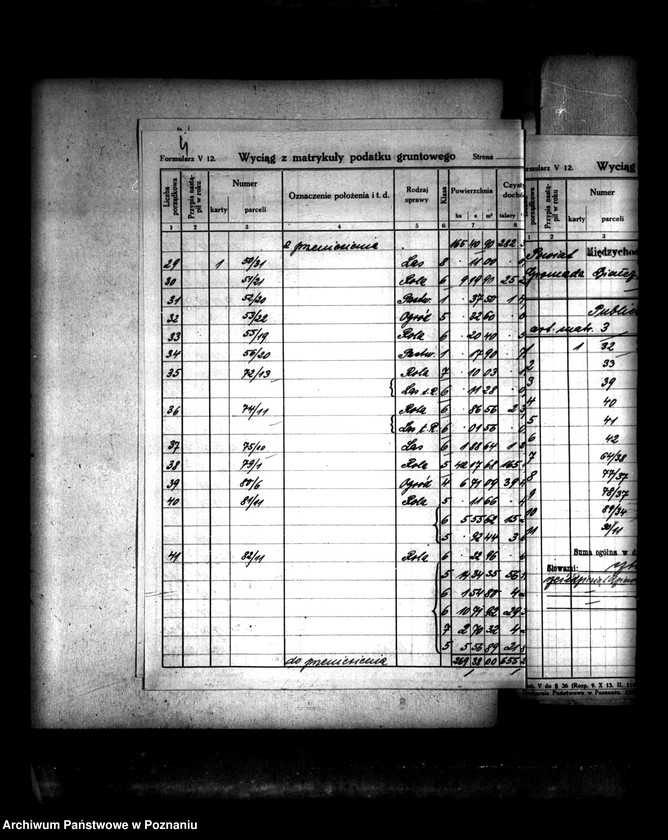 Formularz V 12. Wyciąg z matrykuły podatku gruntowego Strona
Liczba porządkowa Przypis nastąpił w roku Numer Oznaczenie położenia i t. d. Rodzaj uprawy Klasa Powierzchnia
karty parceli ha a m² talary
1 2 3 4 5 6 7 8
z przeniesienia 165 40 90 282
29 1 50/31 Las 8 · 11 00
30 51/21 Rola 6 9 19 91 25
31 52/20 Pastw. 1 · 37 50 1
32 53/22 Ogród 5 · 22 60
33 55/19 Rola 6 · 20 40
34 56/20 Pastw. 1 · 17 90
35 72/13 Rola 7 · 10 03
6 · 11 28
36 74/11 Rola 6 · 86 56 2
6 · 01 56
37 75/10 Las 6 1 88 64 1
38 79/1 Rola 5 42 17 68 165
39 80/6 Ogród 4 6 71 09 39
40 81/11 Rola 5 · 11 66
6 5 53 62 15
5 · 92 44 3
41 82/11 Rola 6 · 22 96
5 14 34 35 56
6 1 54 88 4
6 10 71 62 29
7 2 70 32 4
5 5 56 89 21
do przeniesienia 269 38 00 655
Formularz V 12. Wyciąg
Liczba porządkowa Przypis nastąpił w roku Numer
karty parceli
1 2 3
Powiat Międzycho
Gromada
Public
art. matr. 3
1 1 32
2 33
3 39
4 40
5 41
6 42
7 64/38
8 77/37
9 78/37
10 89/34
11 90/11
Suma ogólna w d
Słowami:
V do § 36 (Rozp. 9. X 13. II.
Państwowa w Poznaniu.
Archiwum Państwowe w Poznaniu